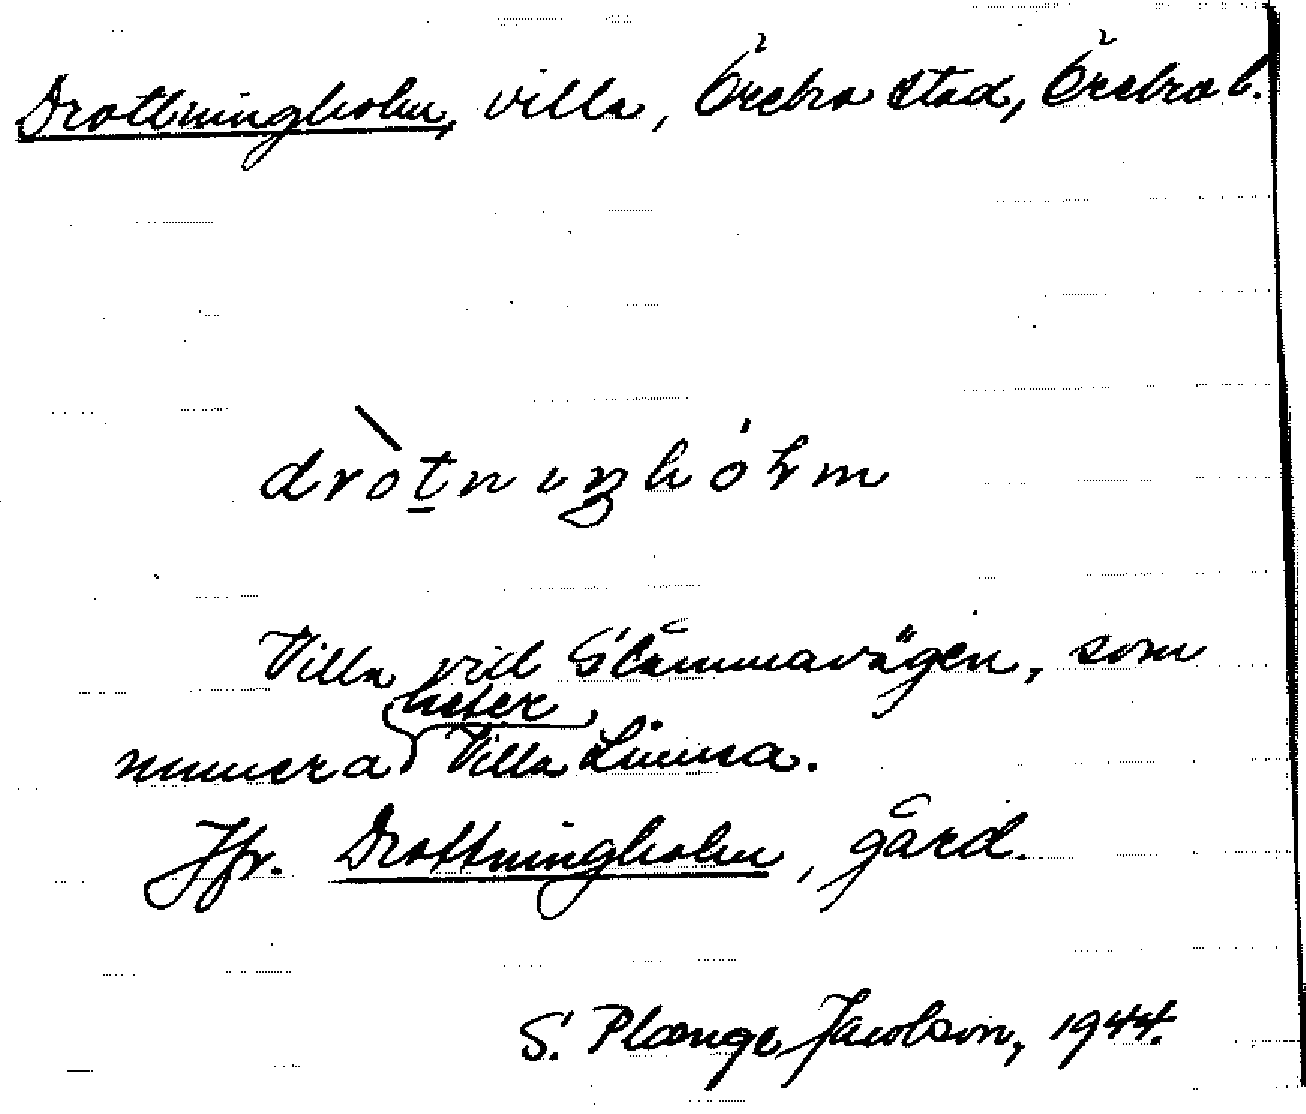 Drottningholm, villa, Örebro stad, Örebro l.
dròtnıŋhólm
Villa vid Slåmmavägen, som
numera heter Villa Linnea.
Jfr. Drottningholm, gård.
S. Plænge Jacobson, 1944.